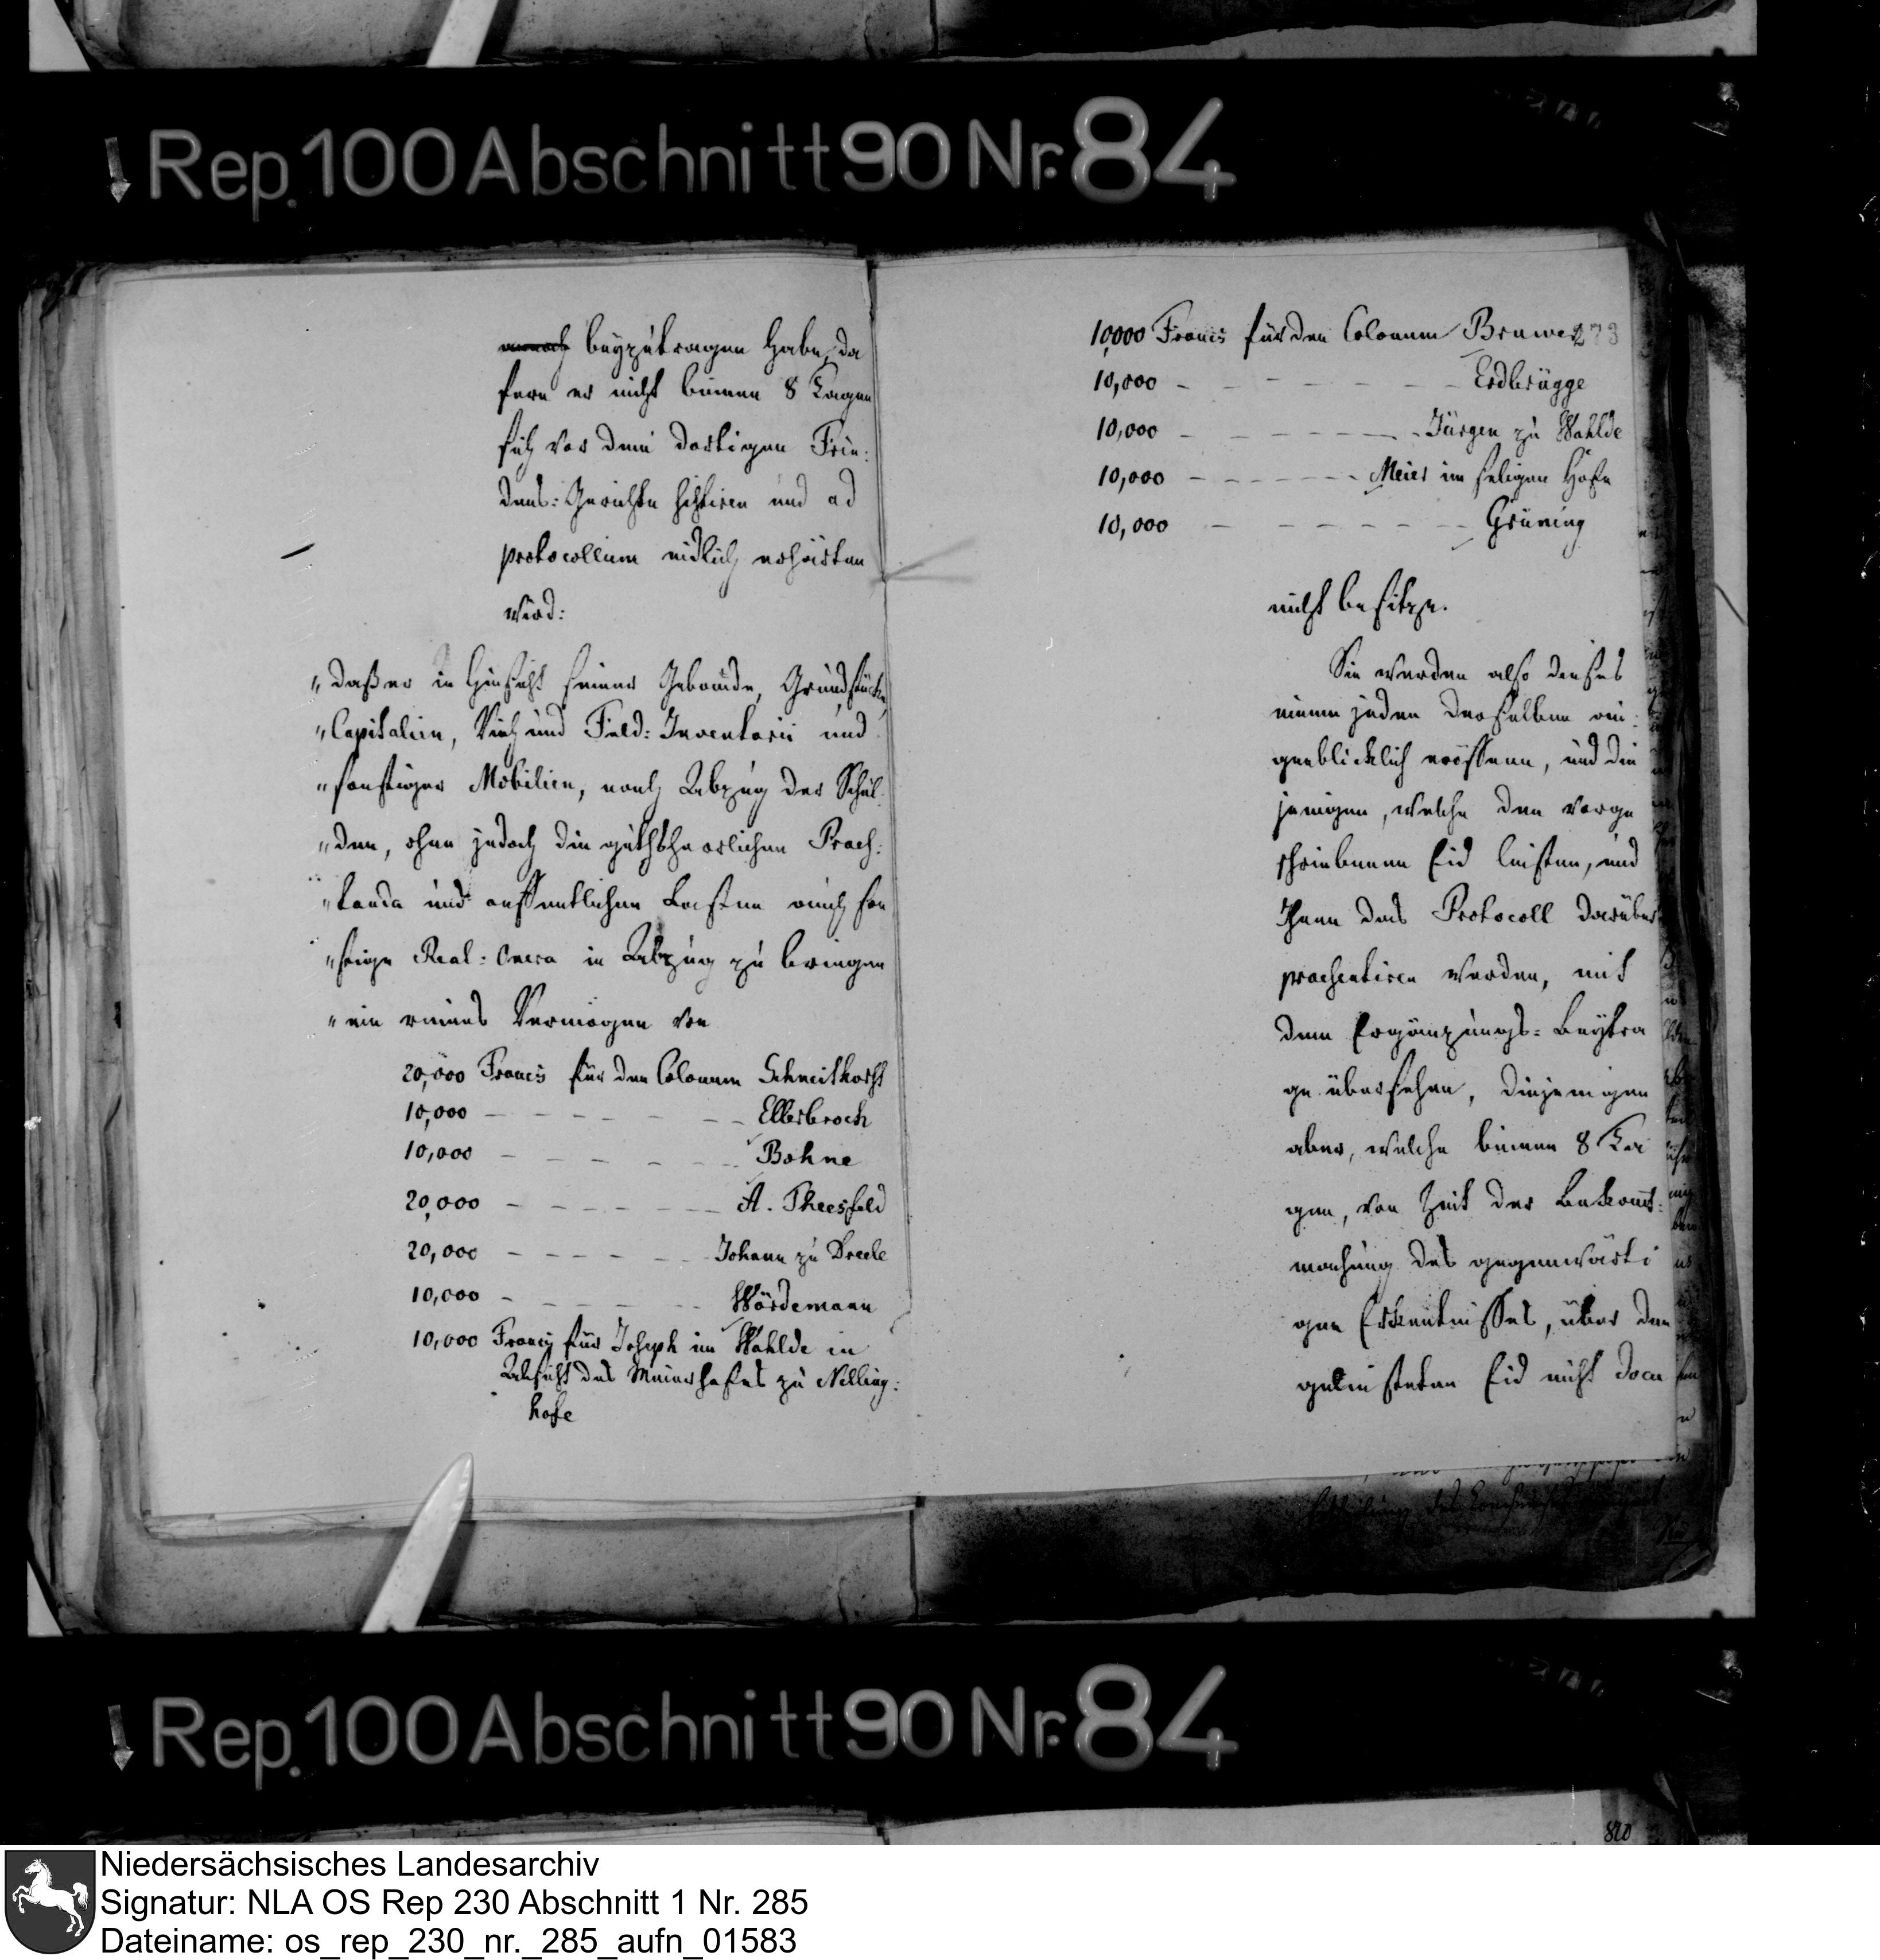 Rep. 100 Abschnitt 90 Nr. 84
beyzutragen habe, da
fern er nicht binnen 8 Tagen
sich vor dem dortigen Frie:
dens: Gerichte sistiren und ad
protocollum eidlich erhärten
wird:
"daß er in Hinsicht seiner Gebäude, Grundstücke,
"Capitalien, Vieh und Feld: Inventarii und
"sonstiger Mobilien, nach Abzug der Schul
"den, ohne jedoch die gutsherrlichen Praes:
"tanda und oeffentlichen Lasten auch son
"stige Real: Onera in Abzug zu bringen
"ein reines Vermögen von
20,000 Francs für den Colonum Schneithorst
10,000 - - - - - - - Ellerbrock
10,000 - - - - - - Bohne
20,000 - - - - - - - A. Theesfeld
20,000 - - - - - - Johann zu Drehle
10,000 - - - - - - Wördemann
10,000 Francs für Joseph im Wahlde in
Absicht des Meierhofes zu Nelling:
hofe
10,000 Francs für den Colonum Bruwer
273
10,000 - - - - - - - Erdbrügge
10,000 - - - - - - - Jürgen zu Wahlde
10,000 - - - - - - - Meier im seligen Hofe
10,000 - - - - - - - Grüning
nicht besitze.
Sie werden also dieses
einem jeden derselben au:
genblicklich eröffnen, und die
jenigen, welche den vorge
schriebenen Eid leisten, und
Ihnen das Protocoll darüber
praesentiren werden, mit
dem Ergänzungs: Beytra
ge übersehen, diejenigen
aber, welche binnen 8 Ta
gen, von Zeit der Bekannt:
machung des gegenwärti
gen Erkenntnisses, über den
geleisteten Eid nicht docu
Rep. 100 Abschnitt 90 Nr. 84
820
Niedersächsisches Landesarchiv
Signatur: NLA OS Rep 230 Abschnitt 1 Nr. 285
Dateiname: os_rep_230_nr._285_aufn_01583